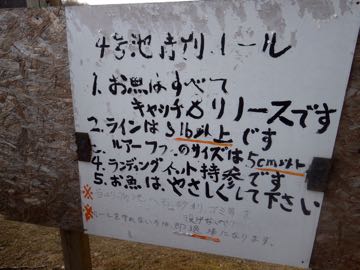 4号池専用ルール
1. お魚はすべて
キャッチ&リリースです
2. ラインは3lb以上です
3. ルアーフックのサイズは5cm以上
4. ランディングネット持参です
5. お魚は、やさしくして下さい
※
※ ルールを守れない方は、即退場になります。